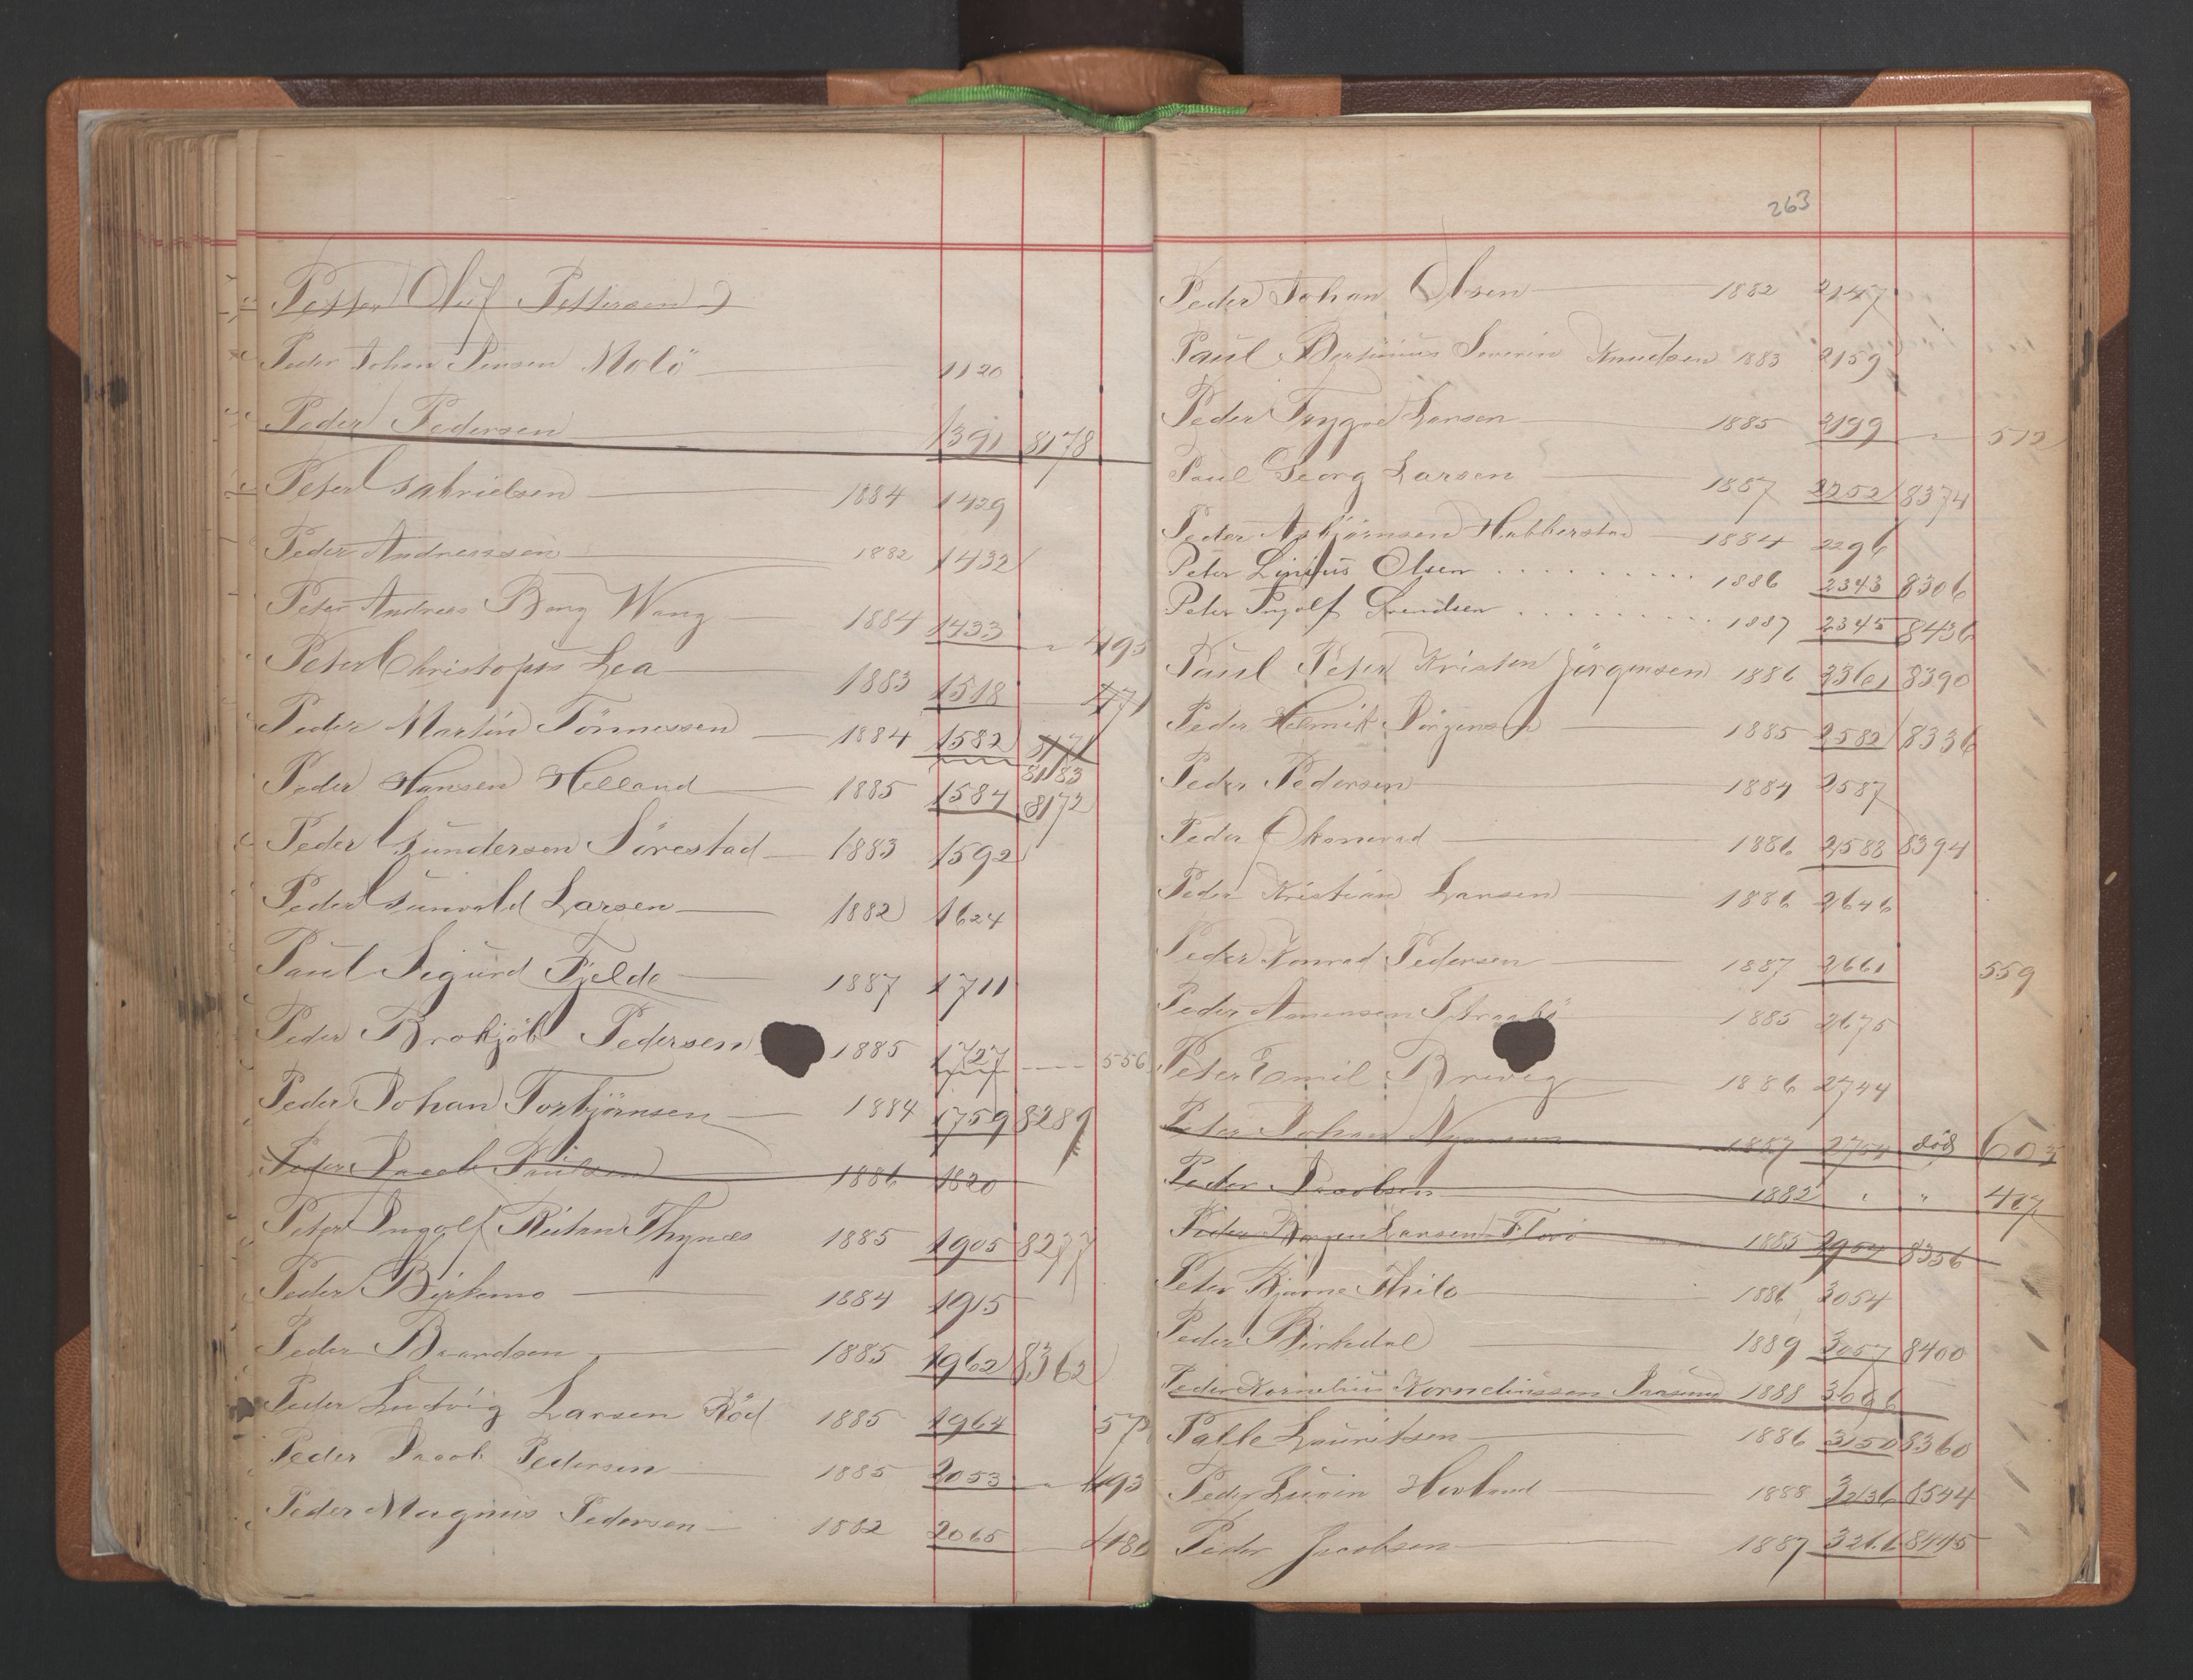 Petter Oluf Pettersen
Peder Johan Jensen Molö 1120
Peder Pedersen 1391 8178
Peter Gabrielsen 1884 1429
Peder Andreassen 1882 1432
Peter Andreas Bong Wang 1884 1433 " 495
Peter Christophs Lea 1883 1518 471
Peder Martin Tönnessen 1884 1582 8171
8183
Peder Hansen Helland 1885 1584 8172
Peder Gundersen Sörestad 1883 1592
Peder Gunvald Larsen 1882 1624
Paul Sigurd Fjelde 1887 1711
Peder Brokjöb Pedersen 1885 1727 556
Peder Johan Torbjörnsen 1884 1759 8289
Peder Jacob Paulsen 1886 1820
Peter Ingolf Thynæs 1885 1905 8277
Peder Birkemo 1884 1915
Peder Baardsen 1885 1962 8362
Peder Ludvig Larsen Röd 1885 1964 57
Peder Jacob Pedersen 1885 2053 " 493
Peder Magnus Pedersen 1882 2065 48
263
Peder Johan Olsen 1882 2147
Paul Bertinius Severin Knudsen 1883 2159
Peder Trygve Larsen 1885 2199 " 512
Paul Georg Larsen 1887 2252 8374
Peder Asbjörnsen Habberstad 1884 2296
Peter Linius Olsen 1886 2343 8306
Peter Ingolf Svendsen 1887 2345 8436
Paul Peter Kristen Jörgensen 1886 2361 8390
Peder Helmik Jörgensen 1885 2582 8336
Peder Pedersen 1884 2587
Peder Okonerad 1886 2588 8394
Peder Kristian Larsen 1886 2646
Peder Konrad Pedersen 1887 2661 559
Peder 1885 2675
Peter Emil Brevig 1886 2744
Peter Johan 1887 2754 död 603
Peder Jacobsen 1882 " " 407
Peder Larsen Florö 1885 2954 8356
Peter Bjarne Thilo 1886 3054
Peder Birkedal 1889 3057 8400
Peder Kornelius Korneliussen 1888 3096
Palle Lauritsen 1886 3150 8360
Peder Hovland 1888 3236 8544
Peder Jacobsen 1887 3266 8445